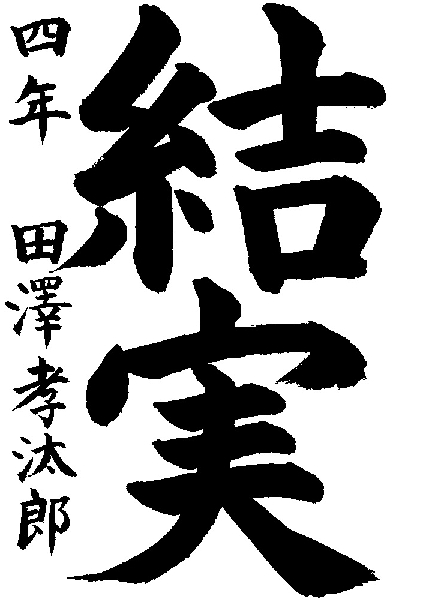 結実
四年 田澤孝汰郎